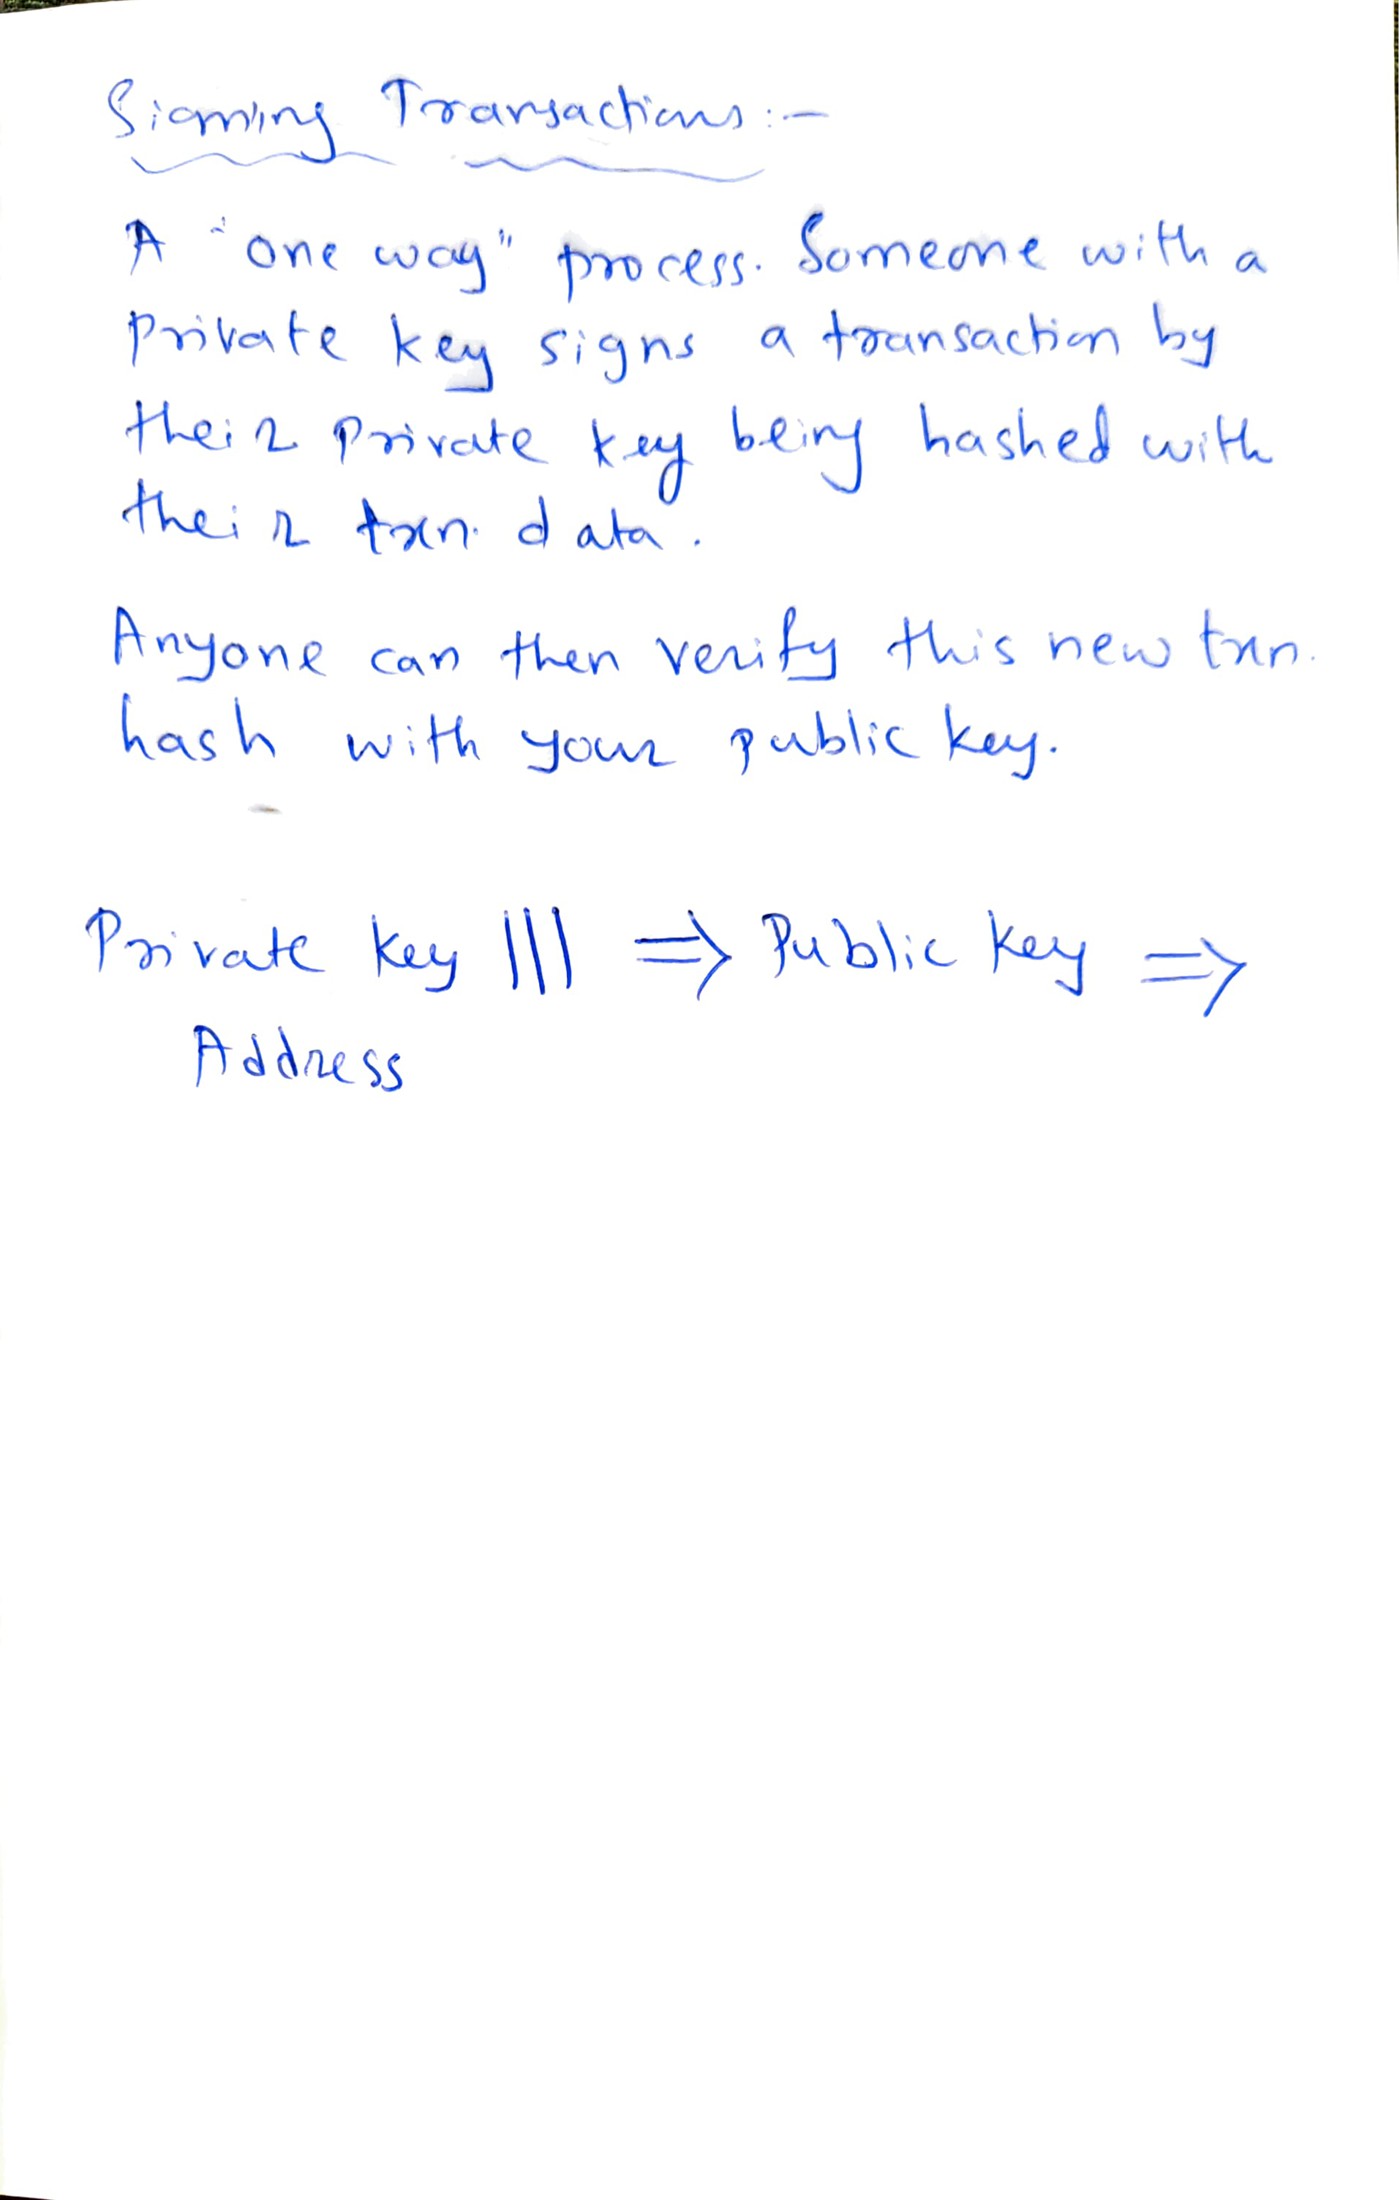 Signing Transactions :-
A "one way" process. Someone with a
private key signs a transaction by
their private key being hashed with
their txn. data.
Anyone can then verify this new txn.
hash with your public key.
Private key ||| => Public key =>
Address